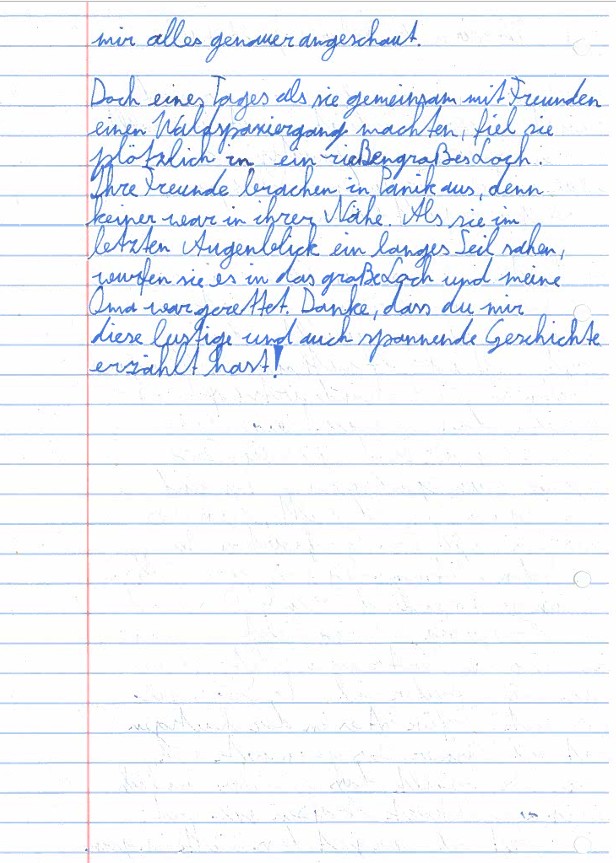 mir alles genauer angeschaut.
Doch eines Tages als sie gemeinsam mit Freunden
einen Waldspaziergang machten, fiel sie
plötzlich in ein rießengroßes Loch.
Ihre Freunde brachen in Panik aus, denn
keiner war in ihrer Nähe. Als sie im
letzten Augenblick ein langes Seil sahen,
wurfen sie es in das große Loch und meine
Oma war gerettet. Danke, dass du mir
diese lustige und auch spannende Geschichte
erzählt hast!